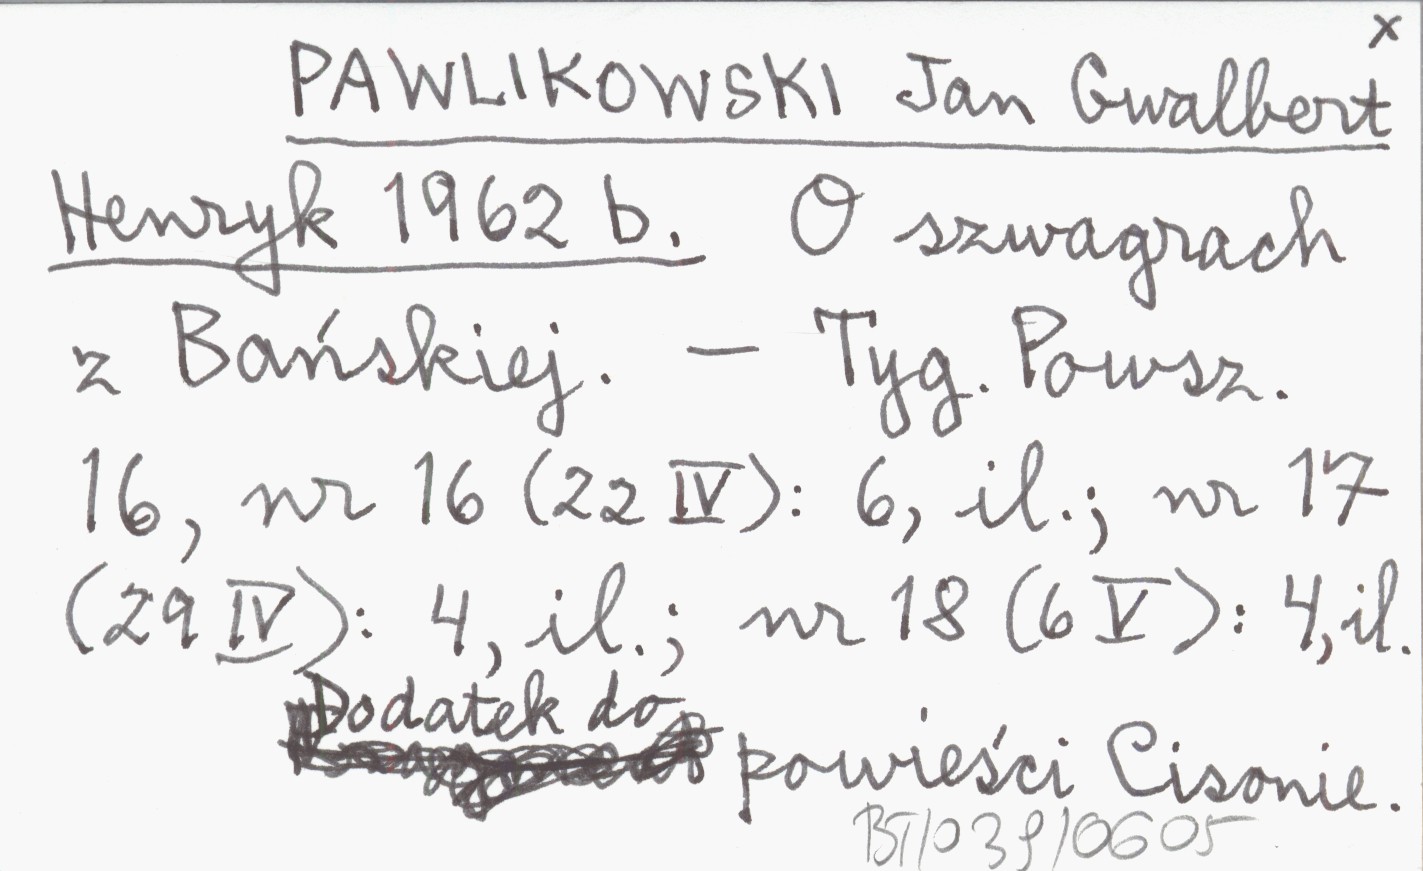 x
PAWLIKOWSKI Jan Gwalbert
Henryk 1962 b. O szwagrach
z Bańskiej. — Tyg. Powsz.
16, nr 16 (22 IV): 6, il.; nr 17
(29 IV): 4, il.; nr 18 (6 V): 4, il.
Dodatek do
powieści Cisonie.
BT/039/0605